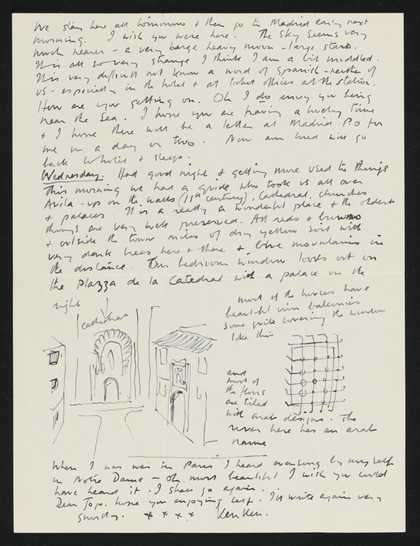 We stay here all tomorrow & then go to Madrid early next
morning. I wish you were here. The sky seems very
much nearer - a very large heavy moon - large stars.
It is all so very strange I think I am a bit muddled.
It is very difficult not know a word of Spanish - neither of
us - especially in the hotel & at ticket offices at the station.
How are you getting on. Oh I do envy you being
near the sea. I hope you are having a lovely time
& I hope there will be a letter at Madrid P.O for
me in a day or two. Now am tired will go
back to hotel & sleep.
Wednesday. Had good night & getting more used to things
This morning we had a guide who took us all over
Avila - up on the walls (11th century), Cathedral, churches
& palaces. It is a really a wonderful place & the oldest
things are very well preserved. All reds & browns
& outside the town miles of dry yellow soil with
very dark trees here & there & blue mountains in
the distance. Our bedroom window looks out on
the Plazza de la Catedral with a palace on the
right
cathedral
most of the houses have
beautiful iron balconies
some quite covering the window
like this
and
most of
the floors
are tiled
with arab designs. The
river here has an arab
name
When I was in Paris I heard evensong by myself
in Notre Dame - oh most beautiful I wish you could
have heard it. I shall go again
Dear Jojo. hope you enjoying self. I'll write again very
shortly. x x x x Ken Ken.